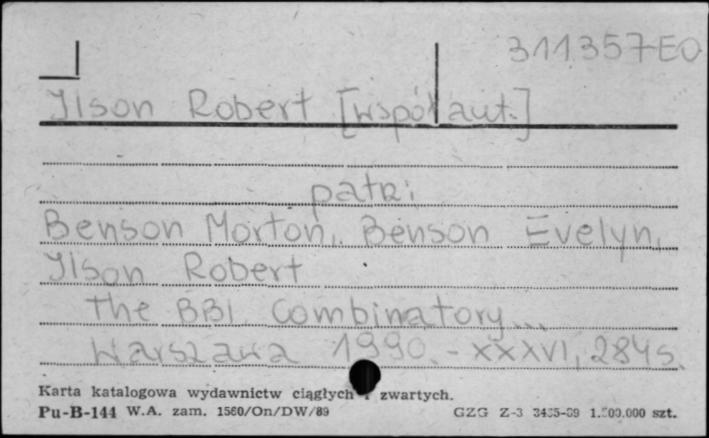 311357-EO
Ilson Robert [współaut.]
patrz:
Benson Morton, Benson Evelyn,
Ilson Robert
The BBI Combinatory...
Warszawa 1990. - XXXVI, 284 s.
Karta katalogowa wydawnictw ciągłych i zwartych.
Pu-B-144 W.A. zam. 1560/On/DW/89 GZG Z-3 3435-89 1.500.000 szt.